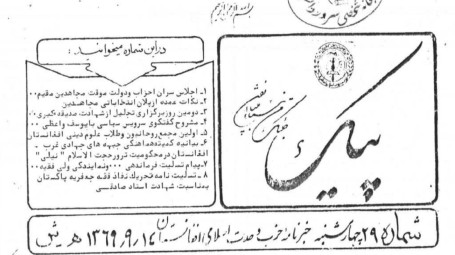 بسم الله الرحمن الرحیم
در این شماره میخوانید:
۱ـ اجلاس سران احزاب ودولت موقت مجاهدین مقیم۰۰
۲ـ نکات عمده ازپلان انتخاباتی مجاهدین
۳ـ دومین روزبرگزاری تجلیل ازشهادت صدیقه کبری(ع)
۴ـ مشروح گفتگوی سرویس سیاسی بایوسف واعظی ۰۰
۵ـ اولین مجمع روحانیون وطلاب علوم دینی افغانستان
۶ـ بیانیه کمیته هماهنگی جبهه های جهادی غرب
افغانستان درمحکومیت ترورحجت الاسلام "نیلی"
۷ـ پیام تسلیت فرماندهی ۰۰۰ونمایندگی ولی فقیه۰۰
۸ـ تسلیت نامه تحریک نفاذ فقه جعفریه پاکستان
بمناسبت شهادت استاد صادقی
پیام
شماره ۲۹ چهارشنبه خبرنامه حزب وحدت اسلامی افغانستان ۱۳۶۹،۹،۱۴ هـ ش